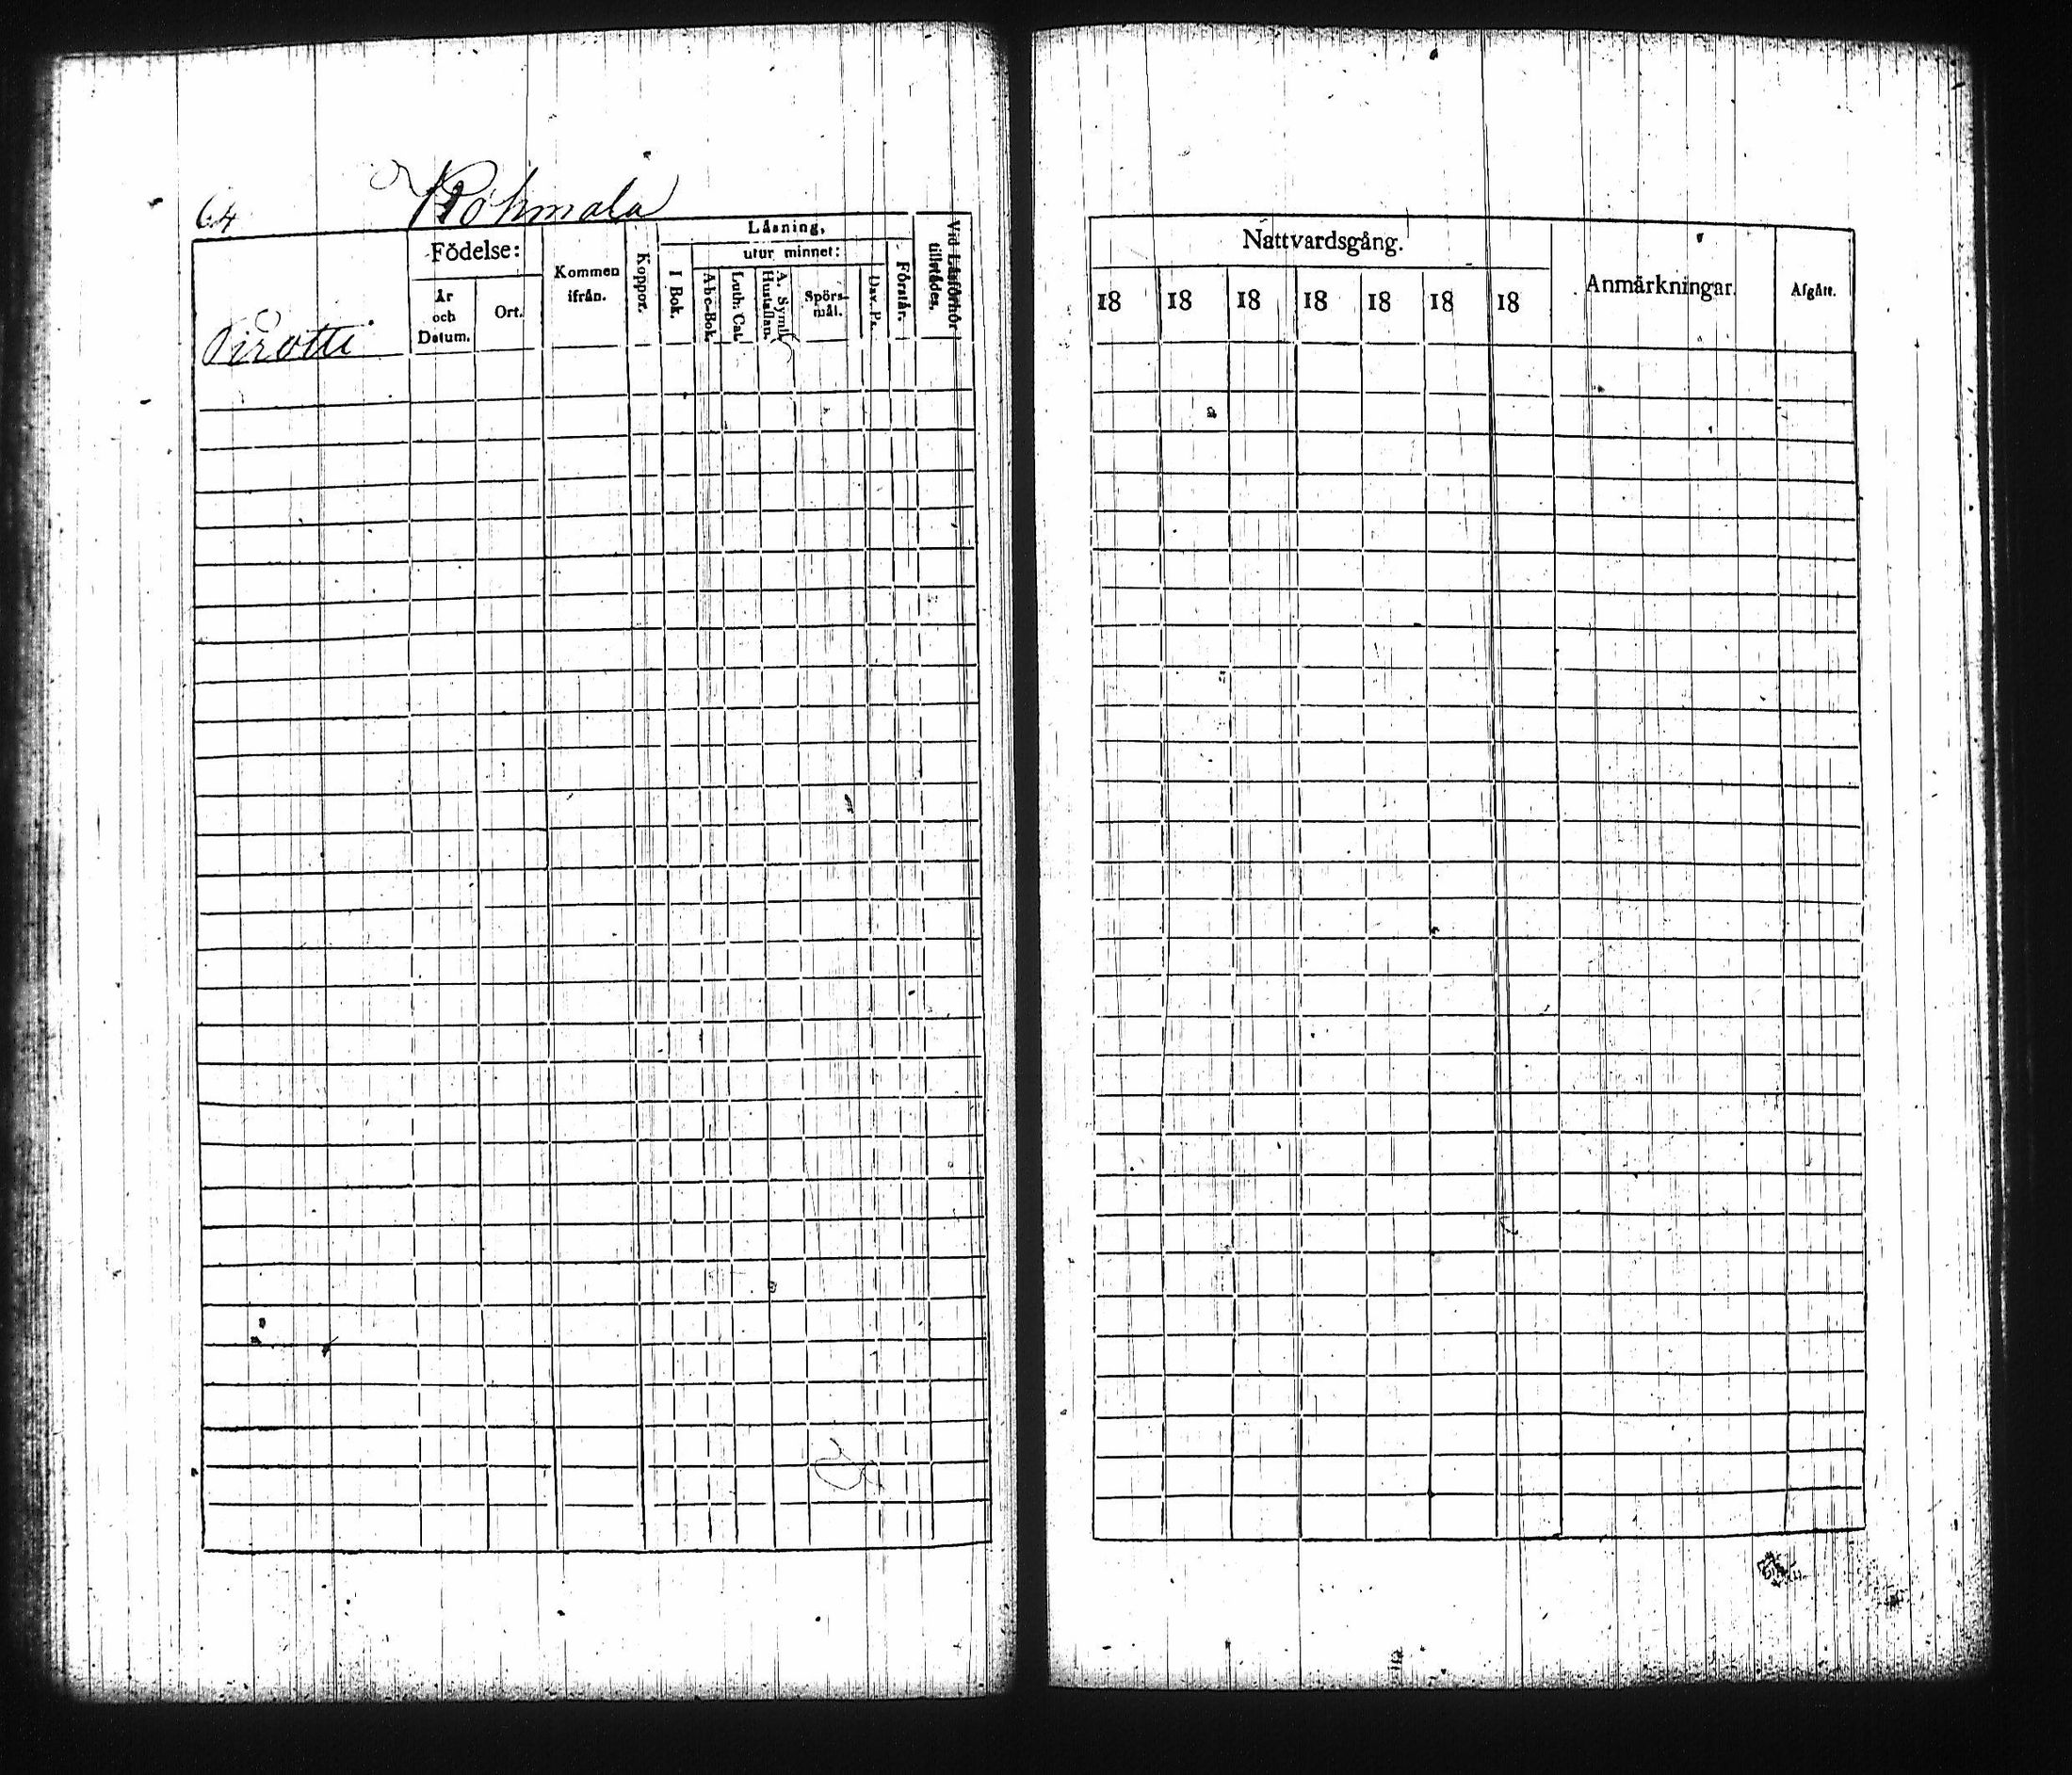 64
Röhmälä
Pirotti
Födelse:
År och Datum.
Ort.
Kommen ifrån.
Koppor.
Läsning,
I Bok.
utur minnet:
Abc-Bok.
Luth: Cat.
A. Symb.
Hustaflan.
Spörs-
mål.
Dav. Ps.
Förstår.
Vid Läsförhör
tillstädes.
Nattvardsgång.
18 18 18 18 18 18 18
Anmärkningar.
Afgått.